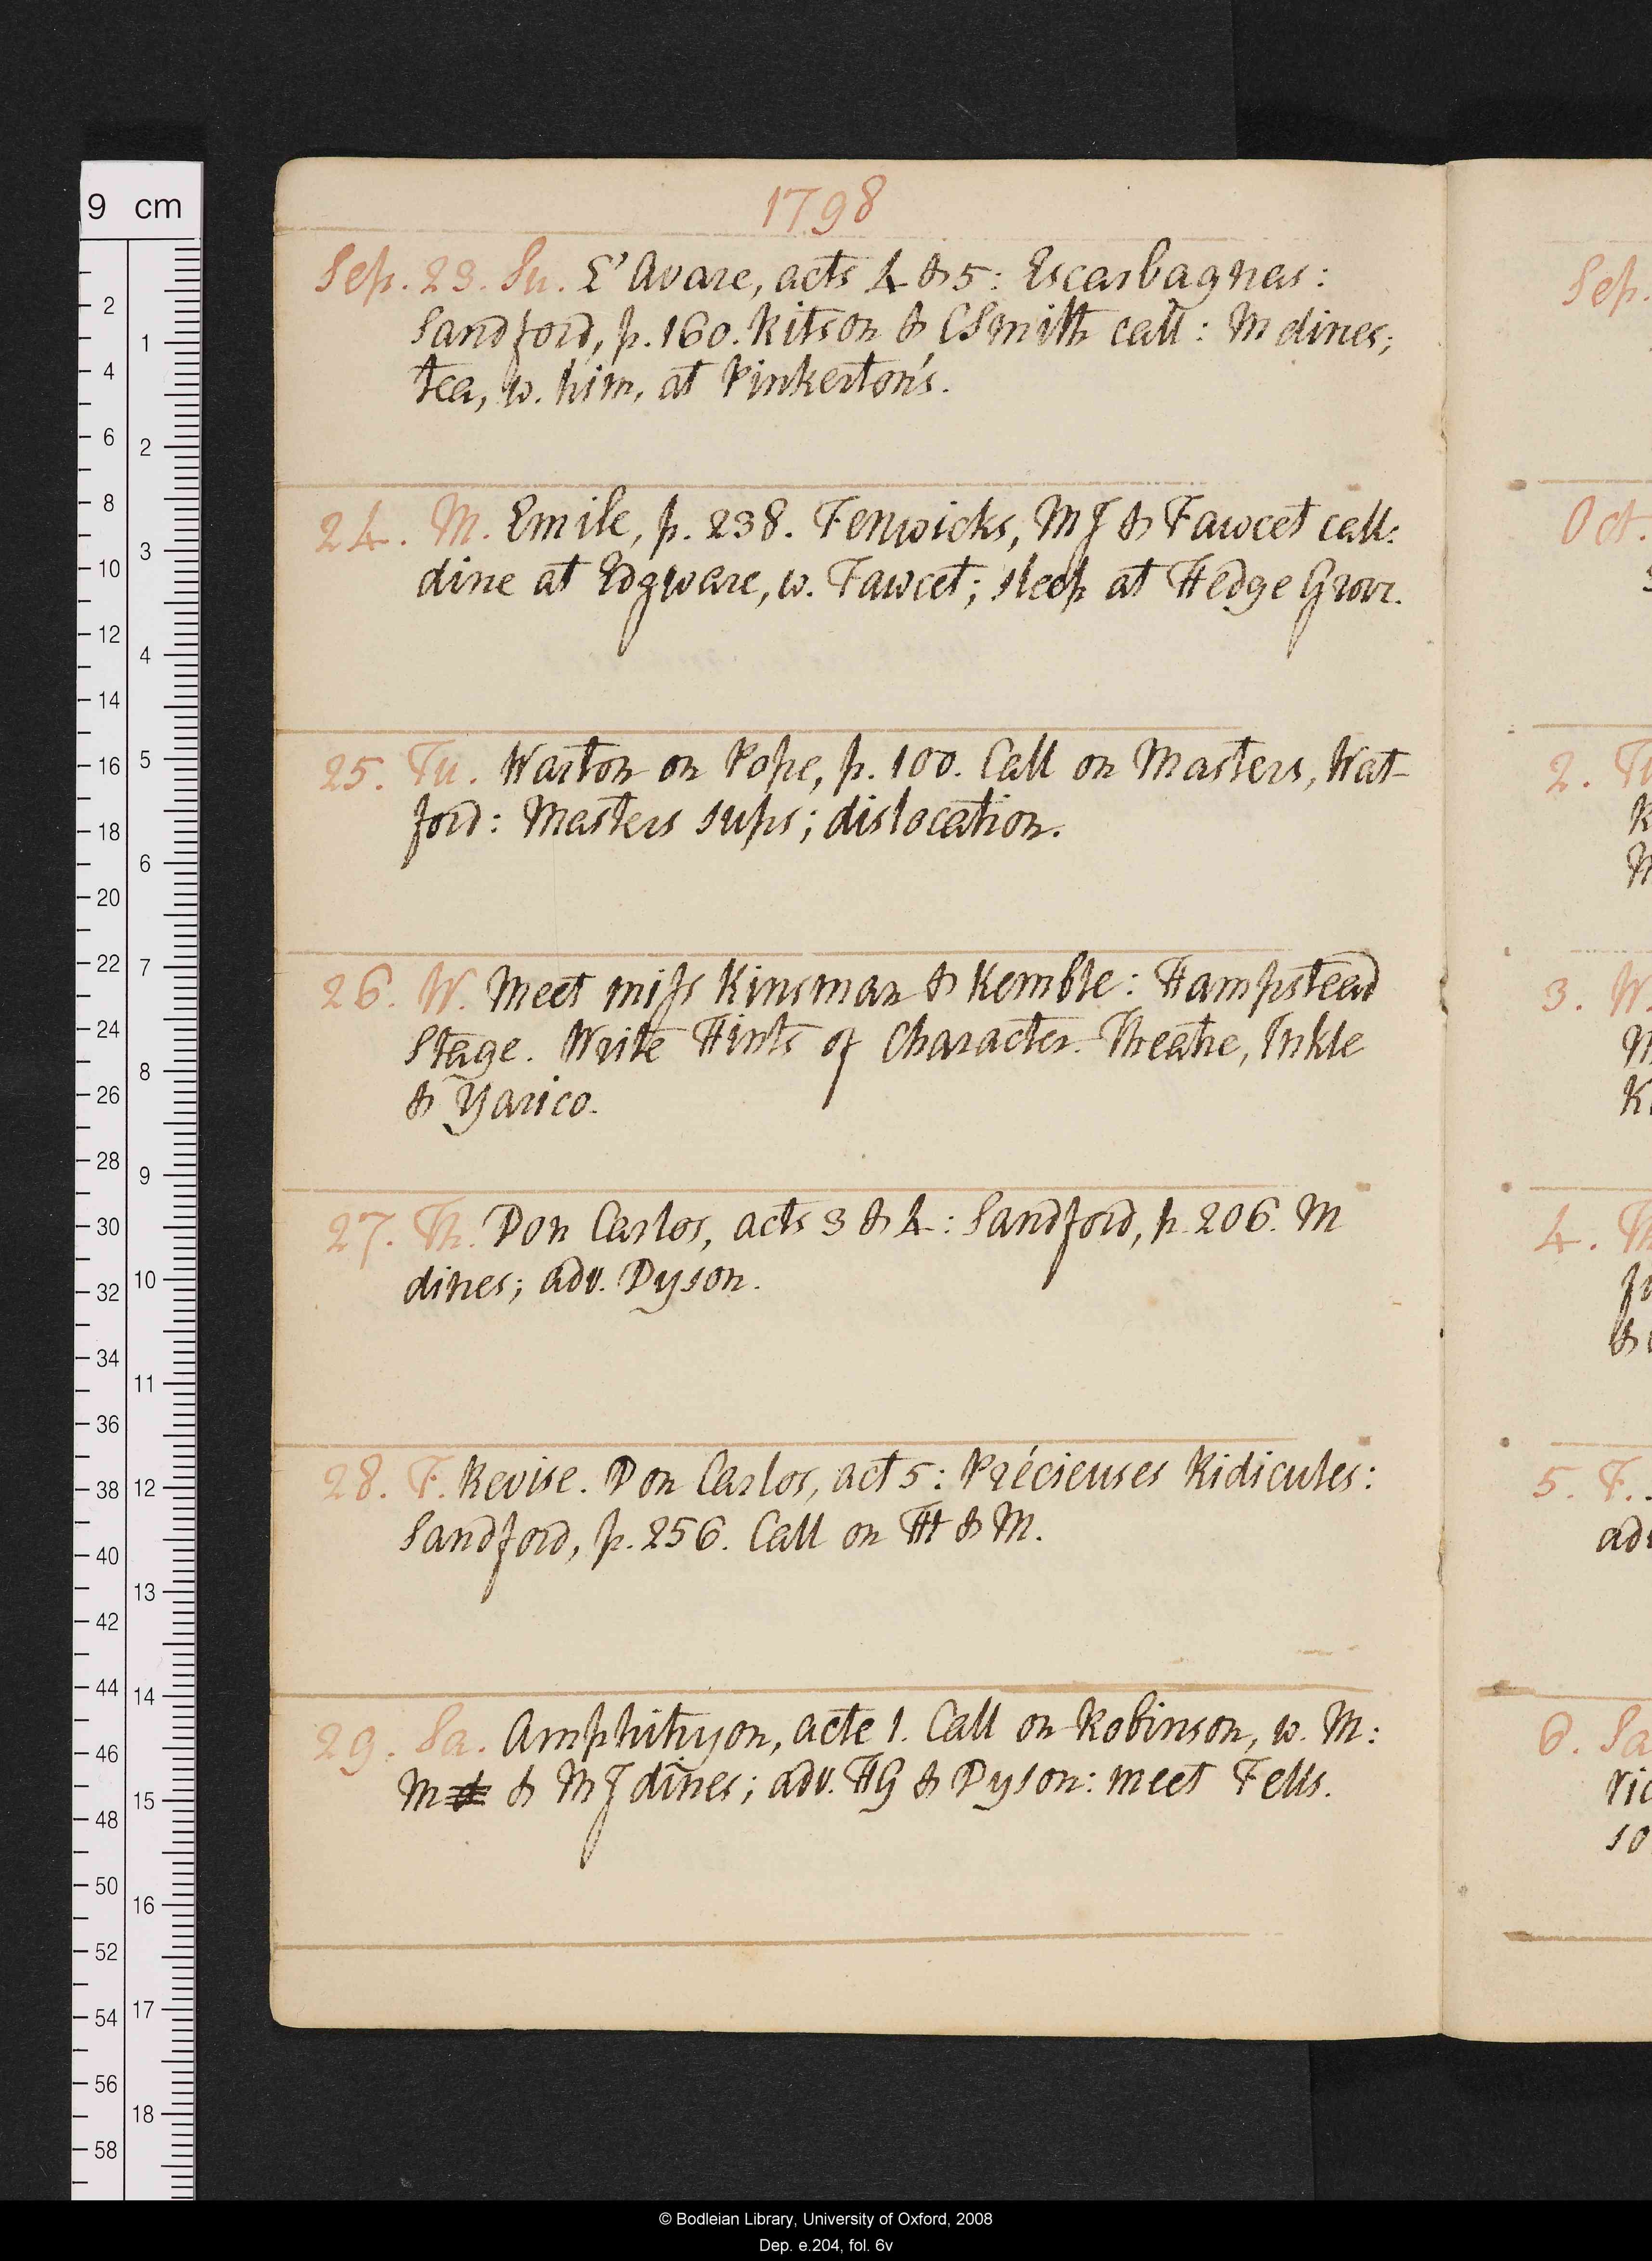 1798
Sep. 23. Su. L'Avare, acts 4 & 5: Escarbagnas:
Sandford, p. 160. Ritson & CSmith call: M dines;
tea, w. him, at Pinkerton's.
24. M. Emile, p. 238. Fenwicks, MJ & Fawcet call:
dine at Edgware, w. Fawcet; sleep at Hedge Grove.
25. Tu. Warton on Pope, p. 100. Call on Masters, Wat-
ford: Masters sups; dislocation.
26. W. Meet miss Kinsman & Kemble: Hampstead
Stage. Write Hints of Character. Theatre, Inkle
& Yarico.
27. Th. Don Carlos, acts 3 & 4: Sandford, p. 206. M
dines; adv. Dyson.
28. F. Revise. Don Carlos, act 5: Précieuses Ridicules:
Sandford, p. 256. Call on H & M.
29. Sa. Amphitryon, acte 1. Call on Robinson, w. M:
M & MJ dines; adv. HG & Dyson: meet Fells.
Sep.
Oct.
2. Tu
3. W.
4. Th
5. F.
adv
6. Sa
9 cm
2 4 6 8 10 12 14 16 18 20 22 24 26 28 30 32 34 36 38 40 42 44 46 48 50 52 54 56 58
1 2 3 4 5 6 7 8 9 10 11 12 13 14 15 16 17 18
© Bodleian Library, University of Oxford, 2008
Dep. e.204, fol. 6v